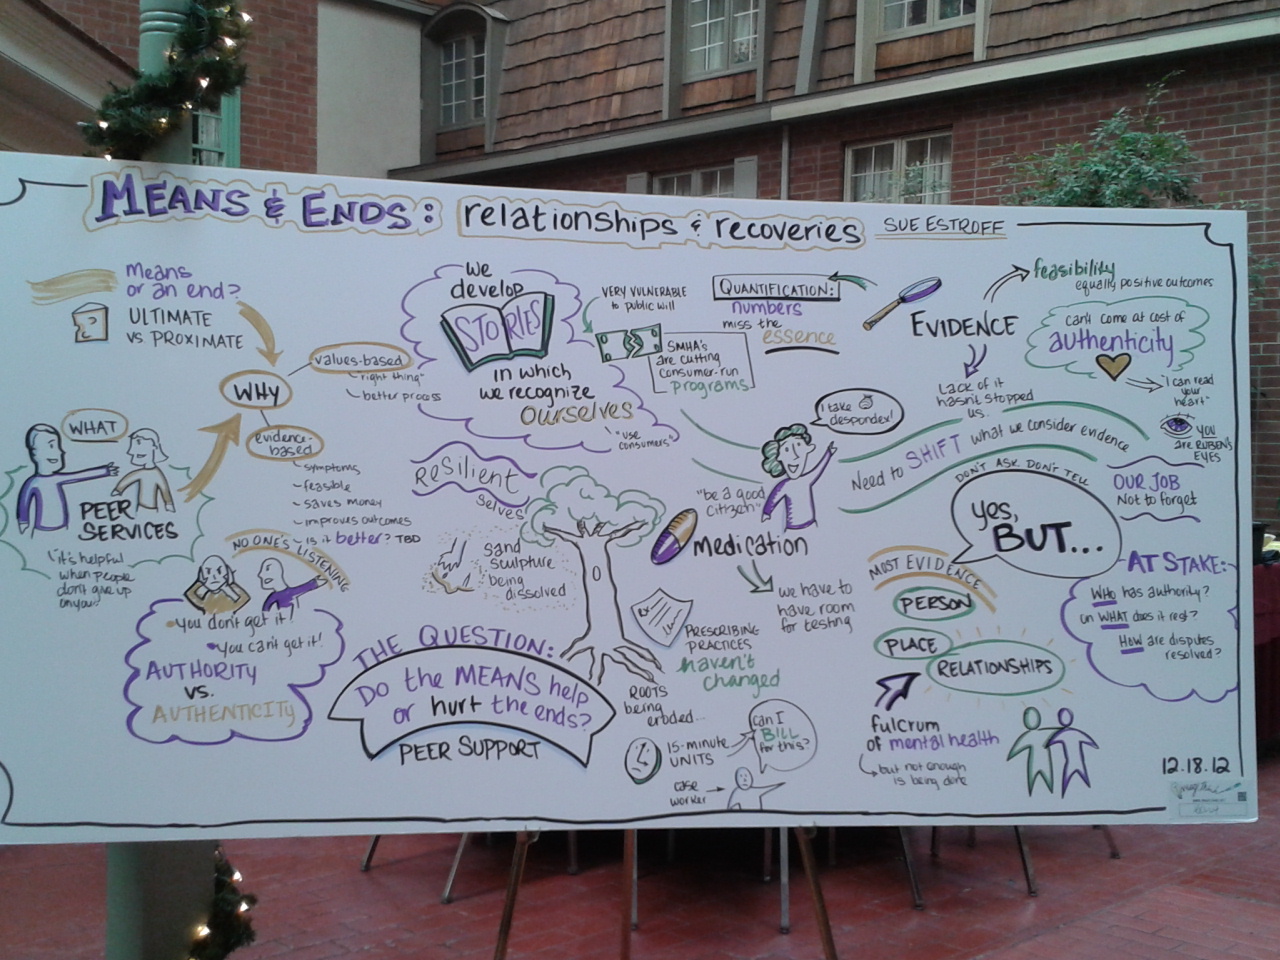 MEANS & ENDS: relationships & recoveries SUE ESTROFF
Means
or an end?
ULTIMATE
vs PROXIMATE
WHY
values-based
"right thing"
better process
evidence-
based
- symptoms
- feasible
- saves money
- improves outcomes
- is it better? TBD
WHAT
PEER
SERVICES
"it's helpful
when people
don't give up
on you"
NO ONE'S LISTENING
you don't get it!
you can't get it!
AUTHORITY
VS.
AUTHENTICITY
We
develop
STORIES
in which
we recognize
OURSELVES
"use
consumers"
VERY VULNERABLE
to public will
SMHA's
are cutting
consumer-run
programs
Resilient
selves
sand
sculpture
being
dissolved
THE QUESTION:
Do the MEANS help
or hurt the ends?
PEER SUPPORT
ROOTS
being
eroded...
15-minute
UNITS
can I
BILL
for this?
case
worker
QUANTIFICATION:
numbers
miss the
essence
I take
despondex!
"be a good
citizen"
medication
we have to
have room
for testing
PRESCRIBING
PRACTICES
haven't
changed
EVIDENCE
feasibility
equally positive outcomes
can't come at cost of
authenticity
"I can read
your
heart"
YOU
are RUBEN'S
EYES
Lack of it
hasn't stopped
us.
Need to SHIFT what we consider evidence
DON'T ASK DON'T TELL
yes,
BUT...
OUR JOB
Not to forget
MOST EVIDENCE
PERSON
PLACE
RELATIONSHIPS
fulcrum
of mental health
but not enough
is being done
AT STAKE:
WHO has authority?
on WHAT does it rest?
HOW are disputes
resolved?
12.18.12